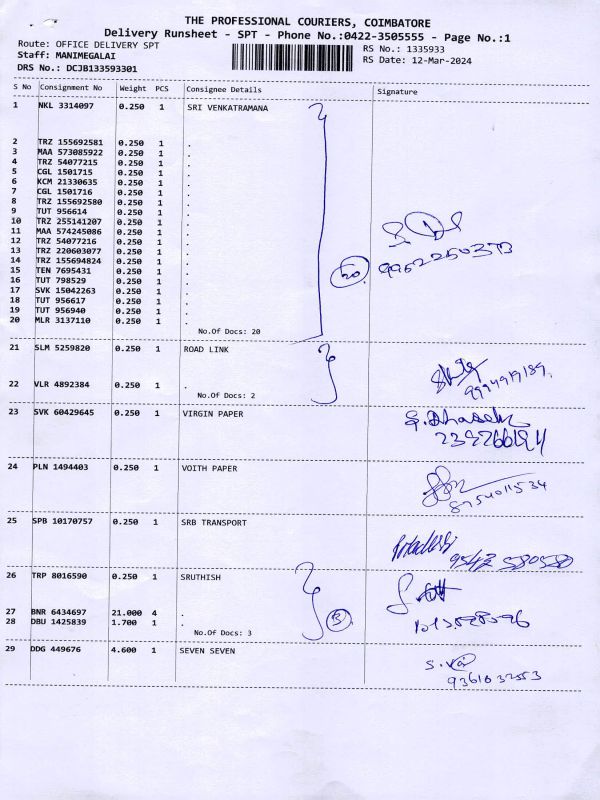 THE PROFESSIONAL COURIERS, COIMBATORE
Delivery Runsheet - SPT - Phone No.:0422-3505555 - Page No.:1
Route: OFFICE DELIVERY SPT RS No.: 1335933
Staff: MANIMEGALAI RS Date: 12-Mar-2024
DRS No.: DCJB133593301
S No Consignment No Weight PCS Consignee Details Signature
1 NKL 3314097 0.250 1 SRI VENKATRAMANA
2 TRZ 155692581 0.250 1 .
3 MAA 573085922 0.250 1 .
4 TRZ 54077215 0.250 1 .
5 CGL 1501715 0.250 1 .
6 KCM 21330635 0.250 1 .
7 CGL 1501716 0.250 1 .
8 TRZ 155692580 0.250 1 .
9 TUT 956614 0.250 1 .
10 TRZ 255141207 0.250 1 .
11 MAA 574245086 0.250 1 .
12 TRZ 54077216 0.250 1 .
13 TRZ 220603077 0.250 1 .
14 TRZ 155694824 0.250 1 .
15 TEN 7695431 0.250 1 .
16 TUT 798529 0.250 1 .
17 SVK 15042263 0.250 1 .
18 TUT 956617 0.250 1 .
19 TUT 956940 0.250 1 .
20 MLR 3137110 0.250 1 .
20
9952250373
No.Of Docs: 20
21 SLM 5259820 0.250 1 ROAD LINK
22 VLR 4892384 0.250 1 .
No.Of Docs: 2
23 SVK 60429645 0.250 1 VIRGIN PAPER
24 PLN 1494403 0.250 1 VOITH PAPER
8754011534
25 SPB 10170757 0.250 1 SRB TRANSPORT
26 TRP 8016590 0.250 1 SRUTHISH
27 BNR 6434697 21.000 4 .
28 DBU 1425839 1.700 1 .
3
No.Of Docs: 3
29 DDG 449676 4.600 1 SEVEN SEVEN